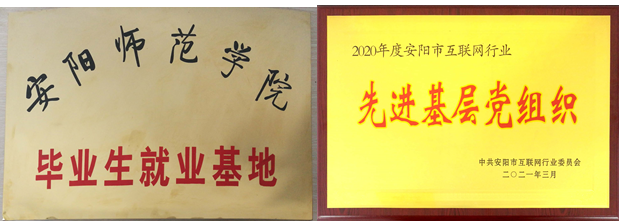 安阳师范学院
毕业生就业基地
2020年度安阳市互联网行业
先进基层党组织
中共安阳市互联网行业委员会
二〇二一年三月